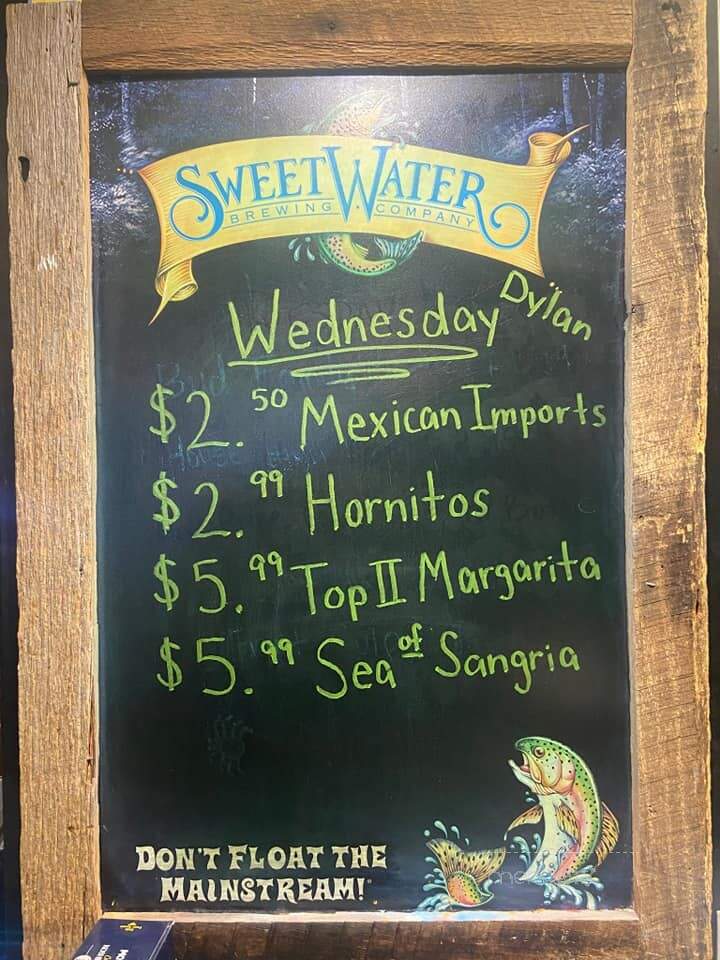 SWEETWATER
BREWING COMPANY
Wednesday Dylan
$2.50 Mexican Imports
$2.99 Hornitos
$5.99 Top II Margarita
$5.99 Sea of Sangria
DON'T FLOAT THE
MAINSTREAM!